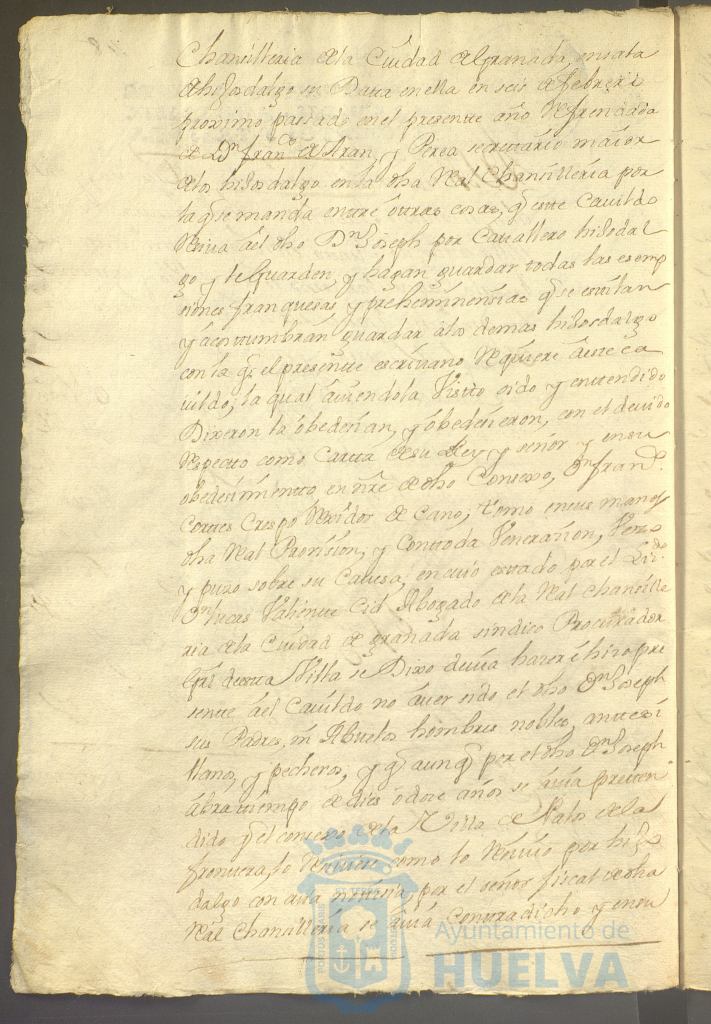 Chansilleria de la Ciudad de Granada, en sala
de hijosdalgo su Data en ella en seis de febrero
proximo passado en el presente año Refrendada
de Dn franco de Aran y Perea secretario maior
de los hijosdalgo en la dha Real Chansilleria por
la q se manda entre otras cosas, q este Cavildo
Reciva a el dho Dn Joseph por Cavallero hijodal
go y le Guarden, y hagan guardar todas las esemp
siones franquesas y preheminensias q se estilan
y acostumbran guardar a los demas hijosdalgo
con la q el presente escrivano Requiere a este ca
vildo, la qual aviendola Visto oido y entendido
Dixeron la obedesian, y obedesieron, con el devido
Respecto como Carta de su Rey y señor y en su
obedesimiento, en nre de dho Consexo, Dn frando
Cortes Crespo Rexidor de Cano, tomo en sus manos
dha Real Provision, y Con toda Venerasion, Veso
y puso sobre su Cavesa, en cuio estado por el Lizdo
Dn lucas Valiente Cid Abogado de la Real chansille
ria de la Ciudad de granada sindico Procurador
Gral de esta Villa se Dixo devia hazer é hizo pre
sente a el Cavildo no aver sido el dho Dn Joseph
sus Padres, ni Abuelos hombres nobles, antes si
llanos, y pecheros, y q aunq por el dho Dn Joseph
abra tiempo de dies o dose años se avia preten
dido q el consexo de la Villa de Palos de la
frontera, lo Reciviese como lo Recivio por hijo
dalgo con cuia notisia, por el señor fiscal de dha
Real Chansilleria se avia Contradicho y en su
Ayuntamiento de
HUELVA